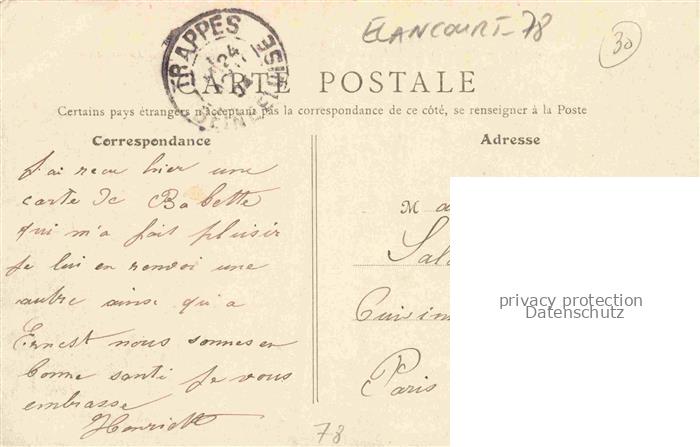 ELANCOURT-78
30
TRAPPES
24
SEINE
OISE
CARTE POSTALE
Certains pays étrangers n'acceptant pas la correspondance de ce côté, se renseigner à la Poste
Correspondance
J'ai recu hier une
carte de Babette
qui m'a fait plaisir
Je lui en renvoi une
autre ainsi qu'a
Ernest nous sommes en
bonne santé Je vous
embrasse
Henriette
78
Adresse
M
Paris
privacy protection
Datenschutz